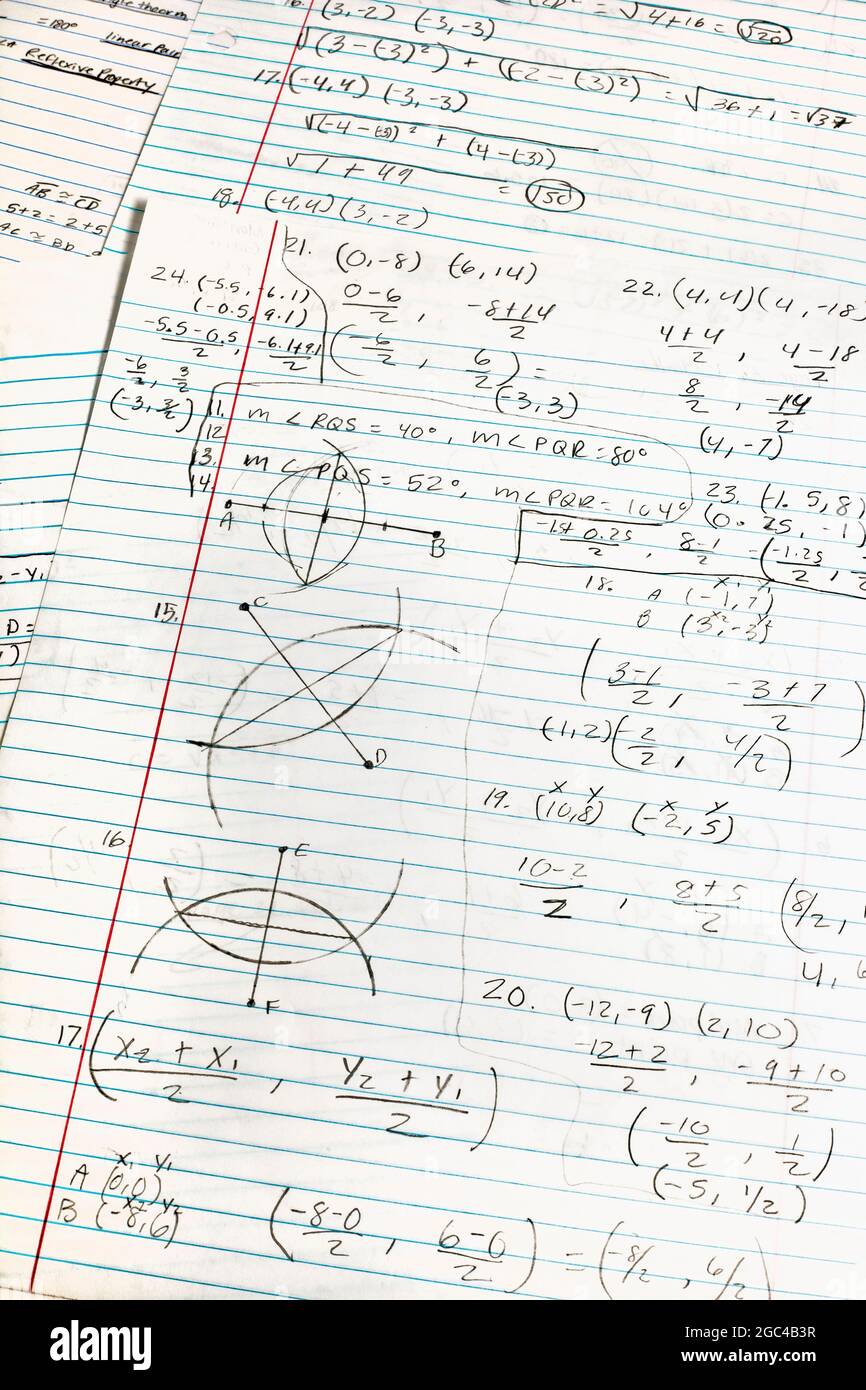 =180°
linear Pair
Reflexive Property
AB ≅ CD
5+2 = 2+5
AC ≅ BD
16. (3,-2) (-3,-3)
√(3-(-3)²) + ((-2-(-3)²) = √36+1 = √37
√4+16 = √20
17. (-4,4) (-3,-3)
√(-4-(-3))² + (4-(-3))
√1 + 49 = √50
18. (-4,4) (3,-2)
21. (0,-8) (6,14)
0-6/2, -8+14/2
(-6/2, 6/2) =
(-3,3)
22. (4,4)(4,-18)
4+4/2, 4-18/2
8/2, -14/2
(4,-7)
24. (-5.5, -6.1)
(-0.5, 9.1)
-5.5-0.5/2, -6.1+9.1/2
-6/2, 3/2
(-3, 3/2)
11. m∠RQS = 40°, m∠PQR = 80°
12
13. m∠PQS = 52°, m∠PQR = 104°
14.
A
B
23. (-1.5,8)
(0.25, -1)
8-1/2 = (-1.25/2,
15.
C
D
18. A (-1,7) x₁ y₁
B (3,-3) x₂ y₂
(3-1/2, -3+7/2)
(1,2) (2/2, 4/2)
19. (10,8) (-2,5)
x y x y
10-2/2, 8+5/2 (8/2,
4, 6
16.
E
F
20. (-12,-9) (2,10)
-12+2/2, -9+10/2
(-10/2, 1/2)
(-5, 1/2)
17. (x₂ + x₁/2, y₂ + y₁/2)
x₁ y₁
A (0,0)
x₂ y₂
B (-8,6)
(-8-0/2, 6-0/2) = (-8/2, 6/2)
- y₁
D =
alamy
Image ID: 2GC4B3R
www.alamy.com